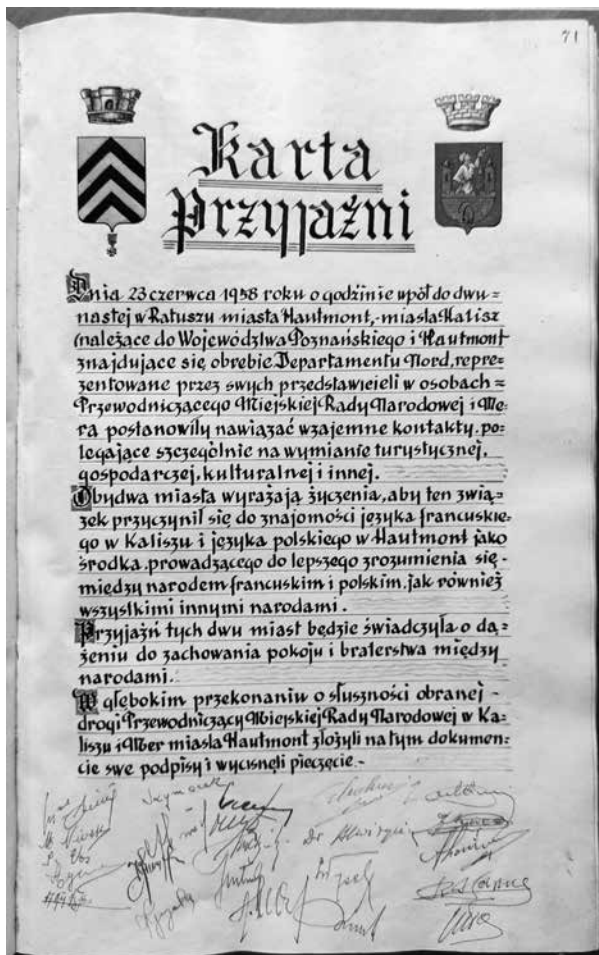 71
Karta
Przyjaźni
Dnia 23 czerwca 1958 roku o godzinie wpół do dwu=
nastej w Ratuszu miasta Hautmont,-miasta Kalisz
(należące do Województwa Poznańskiego i Hautmont
znajdujące się obrębie Departamentu Nord, repre=
zentowane przez swych przedstawicieli w osobach=
Przewodniczącego Miejskiej Rady Narodowej i Me=
ra postanowiły nawiązać wzajemne kontakty, po=
legające szczególnie na wymianie turystycznej,
gospodarczej, kulturalnej i innej.
Obydwa miasta wyrażają życzenia, aby ten zwią=
zek przyczynił się do znajomości języka francuskie=
go w Kaliszu i języka polskiego w Hautmont jako
środka prowadzącego do lepszego zrozumienia się-
między narodem francuskim i polskim, jak również
wszystkimi innymi narodami.
Przyjaźń tych dwu miast będzie świadczyła o dą=
żeniu do zachowania pokoju i braterstwa między
narodami.
W głębokim przekonaniu o słuszności obranej-
drogi Przewodniczący Miejskiej Rady Narodowej w Ka=
liszu i Mer miasta Hautmont złożyli na tym dokumen=
cie swe podpisy i wycisnęli pieczęcie.-